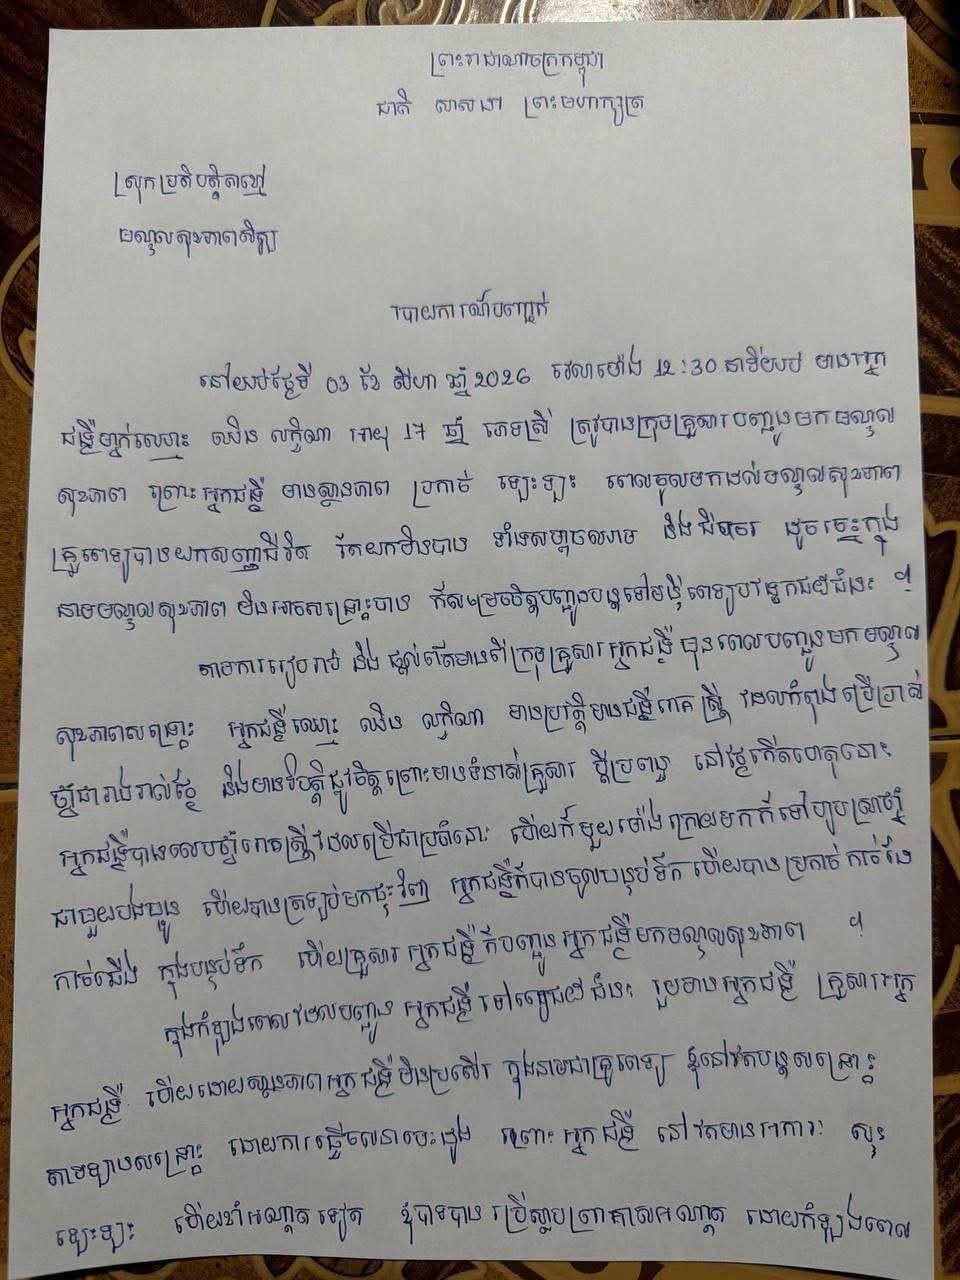 ព្រះរាជាណាចក្រកម្ពុជា
ជាតិ សាសនា ព្រះមហាក្សត្រ
ស្រុកប្រតិបត្តិតាខ្មៅ
មណ្ឌលសុខភាពសិត្បូ
របាយការណ៍បញ្ជាក់
នៅយប់ថ្ងៃទី 03 ខែ សីហា ឆ្នាំ 2026 វេលាម៉ោង 12:30 នាទីយប់ មានអ្នក
ជំងឺម្នាក់ឈ្មោះ ឈិន លក្ខិណា អាយុ 17 ឆ្នាំ ភេទស្រី ត្រូវបានក្រុមគ្រួសារបញ្ជូនមកមណ្ឌល
សុខភាព ព្រោះអ្នកជំងឺ មានស្ថានភាព ប្រកាច់ ឡេះឡះ ពេលចូលមកដល់មណ្ឌលសុខភាព
គ្រូពេទ្យបានយកសញ្ញាជីវិត តែយកមិនបាន ទាំងសម្ពាធឈាម និងជីពចរ ដូចនេះក្នុង
នាមមណ្ឌលសុខភាព មិនអាចសង្គ្រោះបាន ក៏សម្រេចចិត្តបញ្ជូនបន្តទៅមន្ទីរពេទ្យបង្អែកជ័យជំនះ ។
តាមការរៀបរាប់ និង ផ្តល់ព័ត៌មានពីក្រុមគ្រួសារអ្នកជំងឺ មុនពេលបញ្ជូនមកមណ្ឌល
សុខភាពសង្គ្រោះ អ្នកជំងឺឈ្មោះ ឈិន លក្ខិណា មានប្រវត្តិមានជំងឺរោគស្ត្រី ដែលកំពុងប្រើប្រាស់
ថ្នាំជារាងរាល់ថ្ងៃ និងមានវិបត្តិផ្លូវចិត្តព្រោះមានទំនាស់គ្រួសារ ប្តីប្រពន្ធ នៅថ្ងៃកើតហេតុនោះ
អ្នកជំងឺបានលេបថ្នាំរោគស្ត្រីដែលប្រើជាប្រចាំនោះ ហើយក៏មួយម៉ោងក្រោយមកក៏ទៅហូបស្រាថ្នាំ
ជាមួយបងប្អូន ហើយបានត្រឡប់មកផ្ទះវិញ អ្នកជំងឺក៏បានចូលបន្ទប់ទឹក ហើយបានប្រកាច់កាច់ដៃ
កាច់ជើង ក្នុងបន្ទប់ទឹក ហើយគ្រួសារអ្នកជំងឺក៏បញ្ជូនអ្នកជំងឺមកមណ្ឌលសុខភាព ។
ក្នុងកំឡុងពេលដែលបញ្ជូន អ្នកជំងឺទៅពេទ្យជ័យជំនះ រួមមានអ្នកជំងឺ គ្រួសារអ្នក
អ្នកជំងឺ ហើយដោយស្ថានភាពអ្នកជំងឺមិនប្រសើរ ក្នុងនាមជាគ្រូពេទ្យ ខ្ញុំនៅតែបន្តសង្គ្រោះ
តាមឡានសង្គ្រោះ ដោយការធ្វើចលនាបេះដូង ព្រោះអ្នកជំងឺ នៅតែមានអការៈ ស្លុះ
ឡេះឡះ ហើយខាំអណ្តាតទៀត ខ្ញុំបាទបាន ប្រើស្លាបព្រាគាសអណ្តាត ដោយកំឡុងពេល